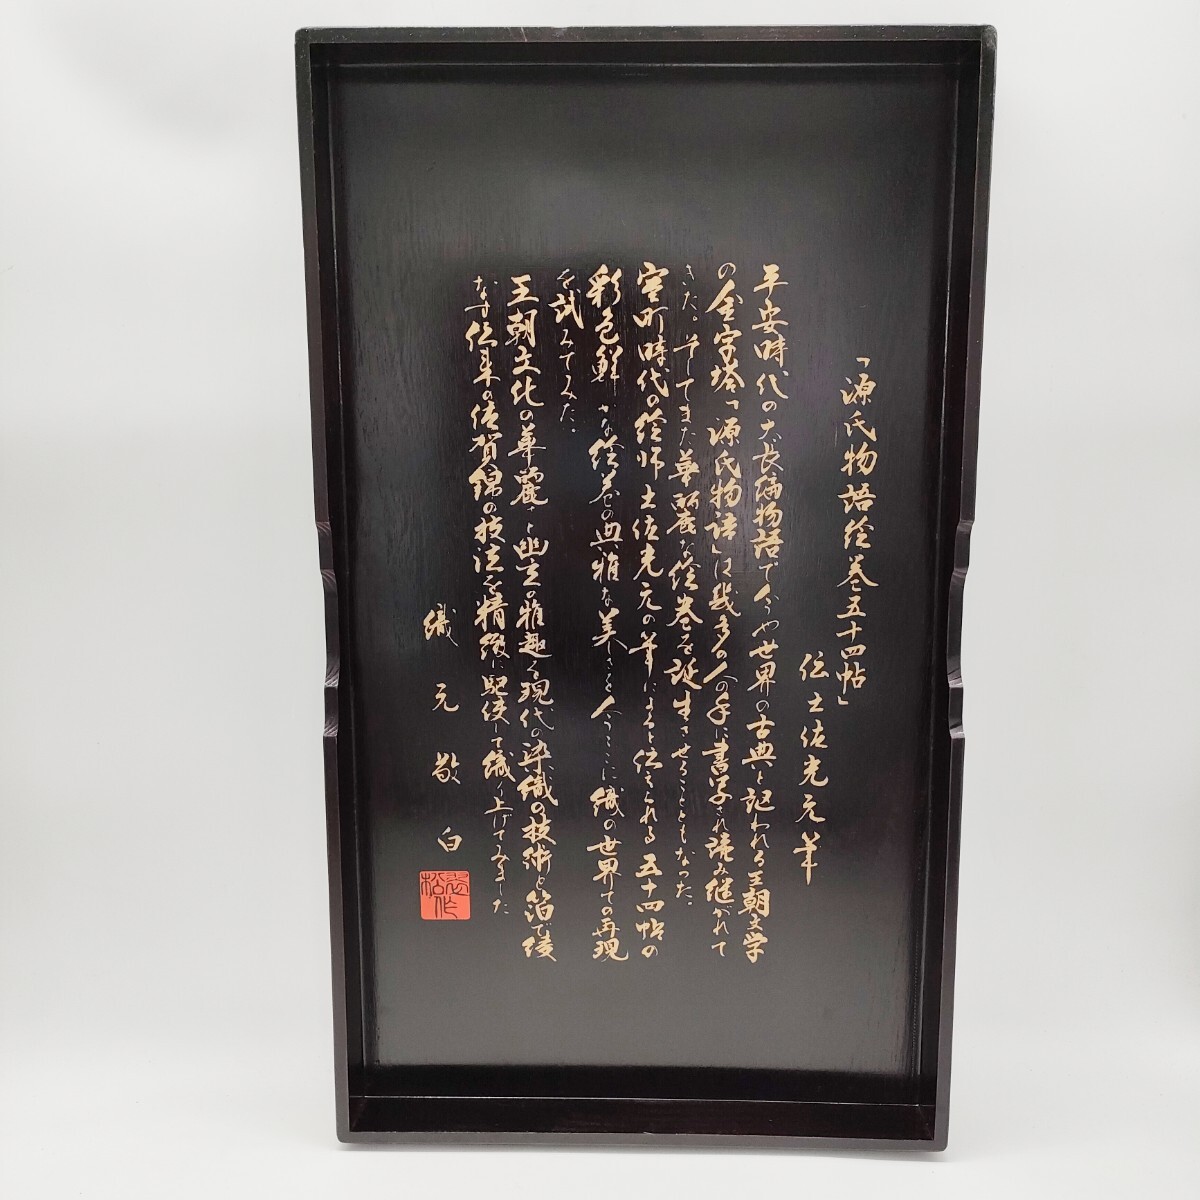 「源氏物語絵巻五十四帖」
伝土佐光元筆
平安時代の大長編物語で今や世界の古典と謳われる王朝文学
の金字塔「源氏物語」は幾多の人の手に書写され読み継がれて
きた。そしてまた華麗な絵巻を誕生させることともなった。
室町時代の絵師土佐光元の筆によると伝えられる五十四帖の
彩色鮮かな絵巻の典雅な美しさを今ここに織の世界での再現
を試みてみた。
王朝文化の華麗さと幽玄の雅趣を現代の染織の技術と箔で綾
なす伝来の佐賀錦の技法を精緻に駆使して織り上げてみました
織元敬白